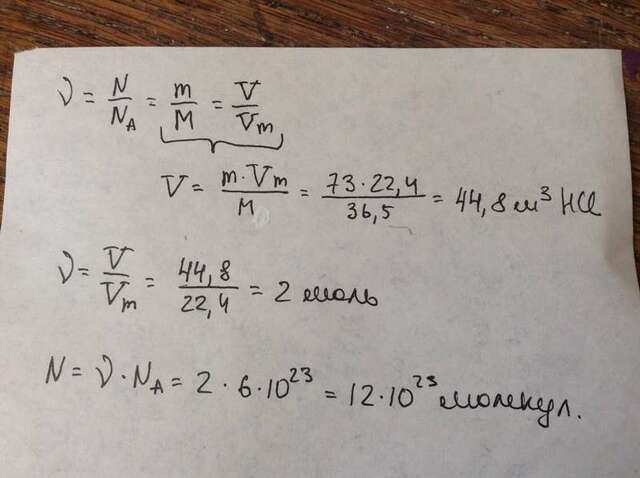 ν = N/N_A = m/M = V/V_m
V = m·V_m/M = 73·22,4/36,5 = 44,8 м³ HCl
ν = V/V_m = 44,8/22,4 = 2 моль
N = ν·N_A = 2·6·10²³ = 12·10²³ молекул.